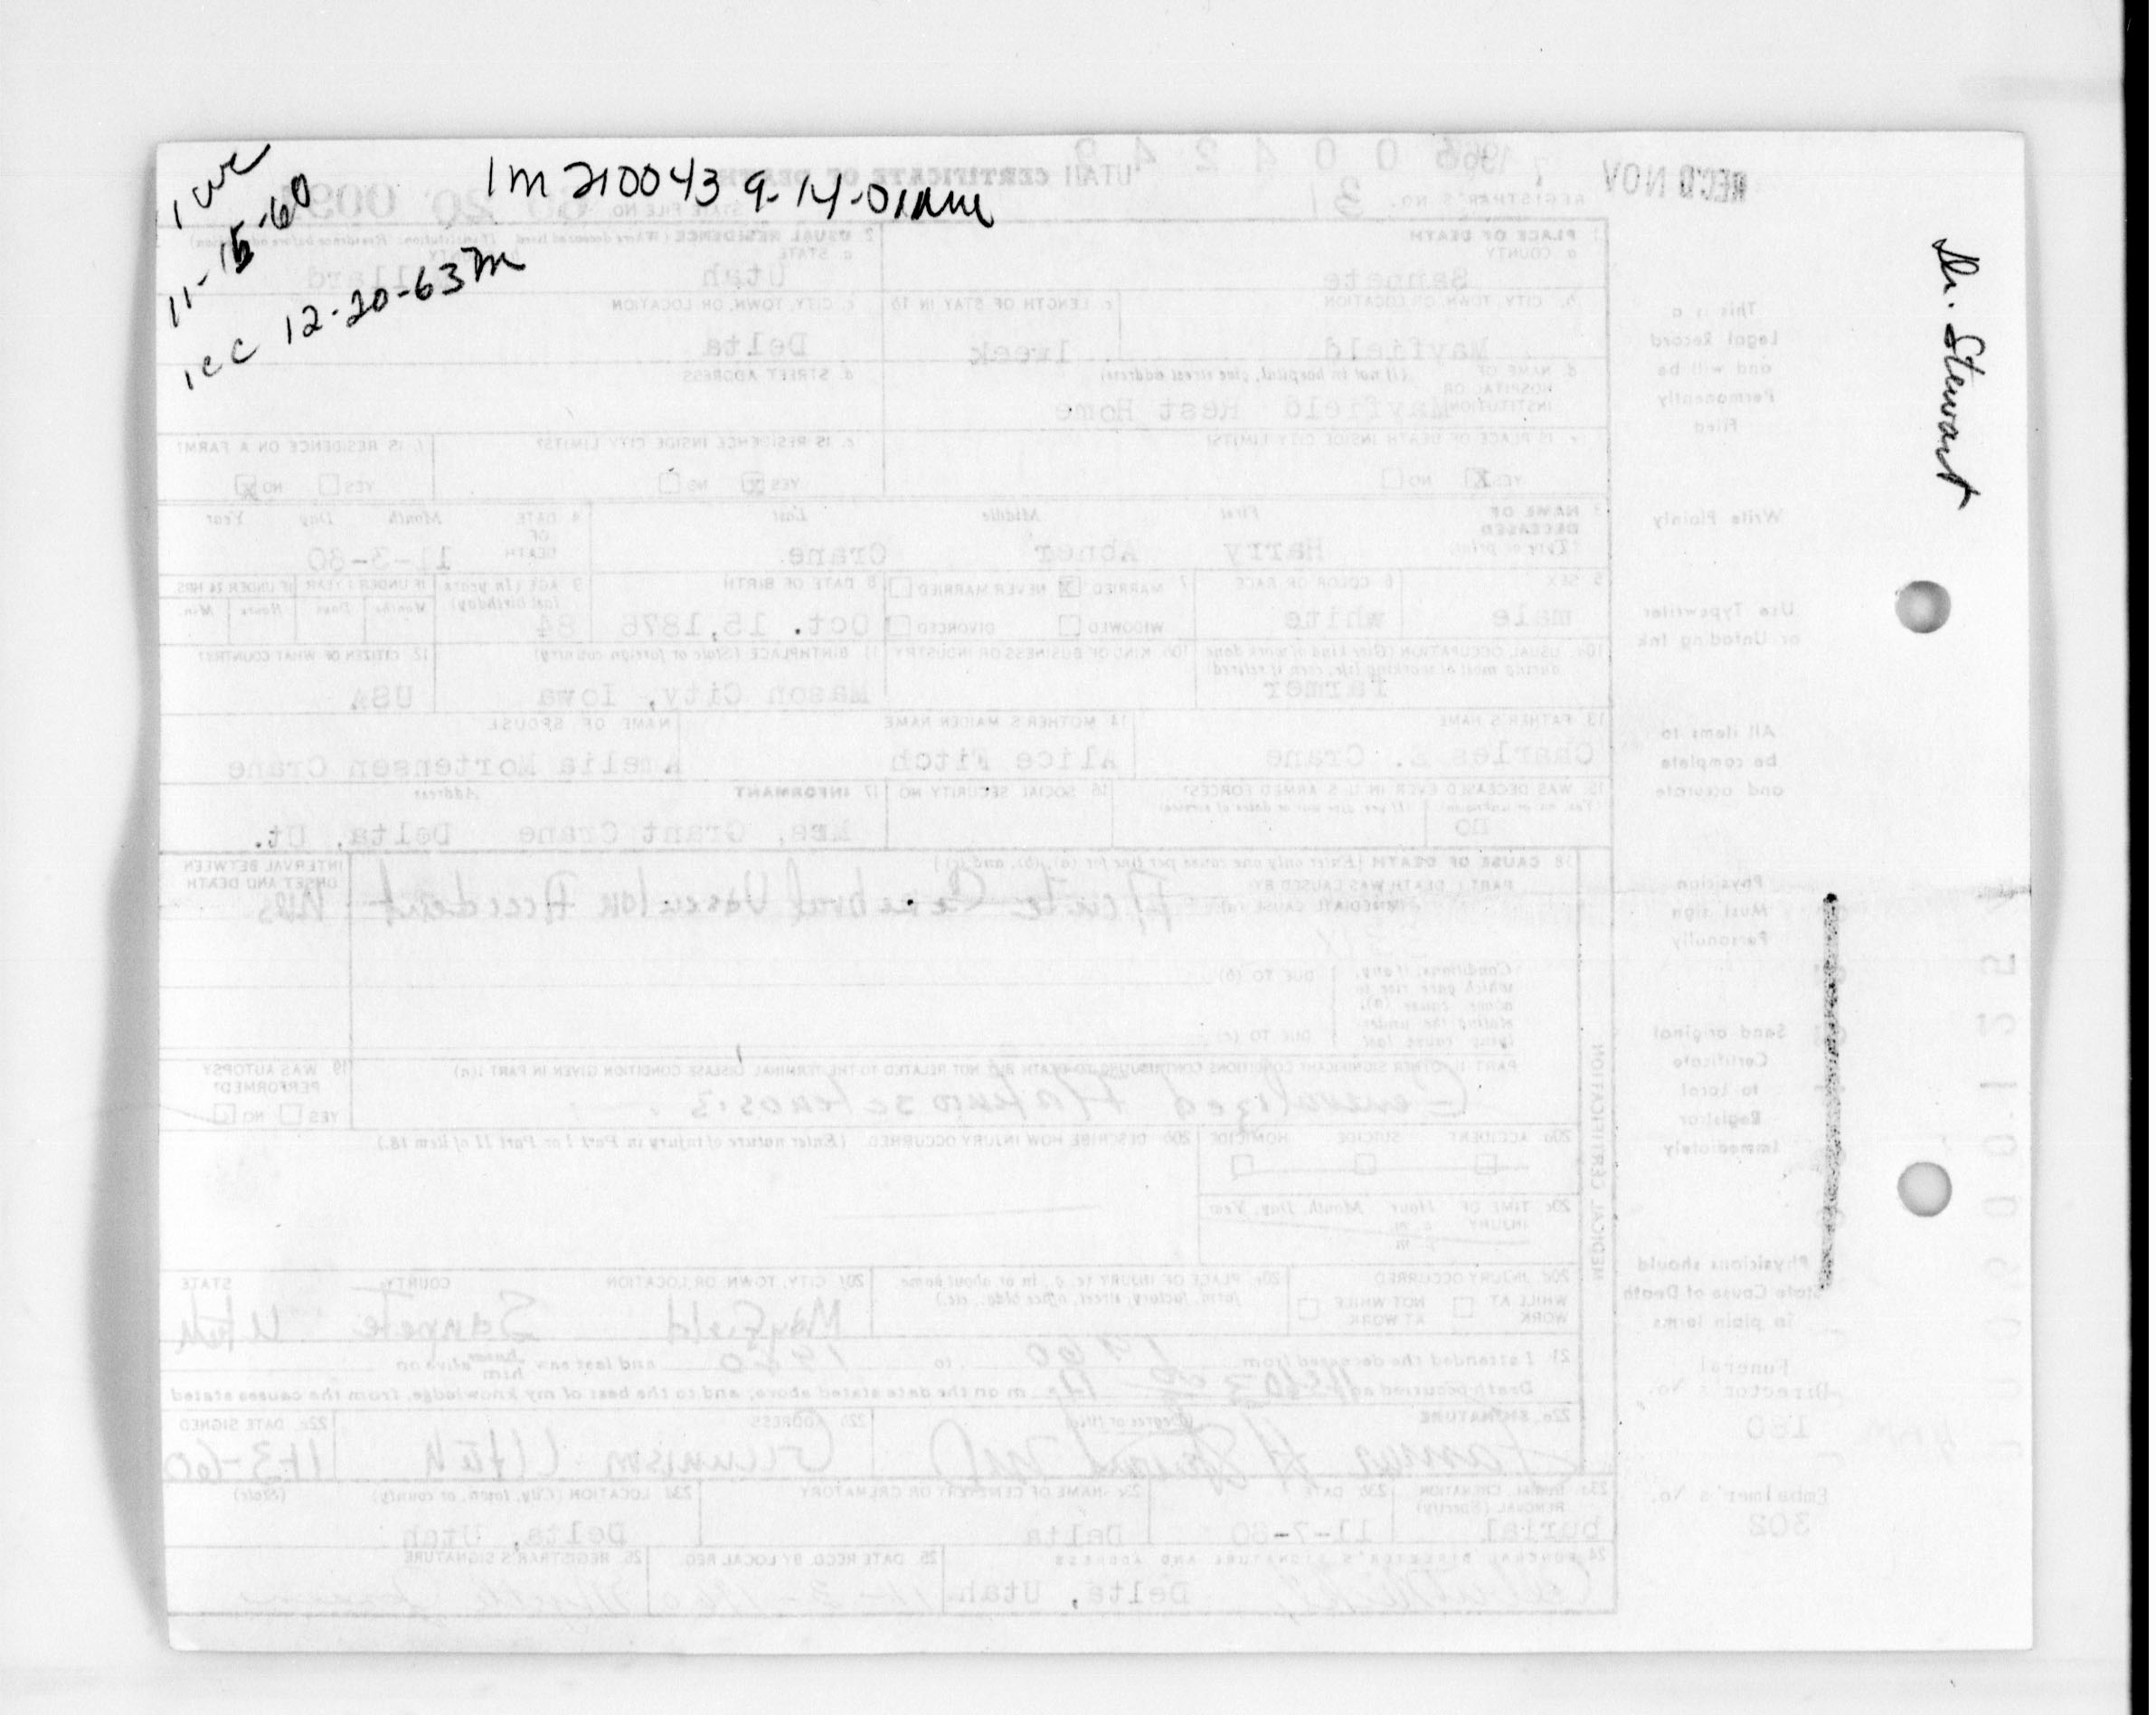 1 wc
11-15-60
1cc 12-20-63 m
1m 210043 9-14-01
Dr. Stewart
REC'D NOV 7 1960
UTAH CERTIFICATE OF DEATH
REGISTRAR'S NO. 3
STATE FILE NO. 60 20
1 PLACE OF DEATH
a. COUNTY
Sanpete
2 USUAL RESIDENCE (Where deceased lived. If institution: Residence before admission)
a. STATE
Utah
COUNTY
Millard
b. CITY, TOWN, OR LOCATION
Mayfield
c. LENGTH OF STAY IN 1b
1 week
c. CITY, TOWN, OR LOCATION
Delta
d. NAME OF HOSPITAL OR INSTITUTION (If not in hospital, give street address)
Mayfield Rest Home
d. STREET ADDRESS
e. IS PLACE OF DEATH INSIDE CITY LIMITS?
YES X NO
e. IS RESIDENCE INSIDE CITY LIMITS?
YES X NO
f. IS RESIDENCE ON A FARM?
YES NO X
3 NAME OF DECEASED (Type or print)
First Middle Last
Harry Abner Crane
4 DATE OF DEATH Month Day Year
11-3-60
5 SEX
male
6 COLOR OR RACE
white
7 MARRIED X NEVER MARRIED
WIDOWED DIVORCED
8 DATE OF BIRTH
Oct. 15, 1876
9 AGE (In years last birthday)
84
IF UNDER 1 YEAR IF UNDER 24 HRS.
Months Days Hours Min.
10a. USUAL OCCUPATION (Give kind of work done during most of working life, even if retired)
Farmer
10b. KIND OF BUSINESS OR INDUSTRY
11 BIRTHPLACE (State or foreign country)
Mason City, Iowa
12 CITIZEN OF WHAT COUNTRY
USA
13 FATHER'S NAME
Charles S. Crane
14 MOTHER'S MAIDEN NAME
Alice Fitch
NAME OF SPOUSE
Amelia Mortensen Crane
15. WAS DECEASED EVER IN U.S. ARMED FORCES?
(Yes, no, or unknown) (If yes give war or dates of service)
no
16 SOCIAL SECURITY NO
17 INFORMANT Address
Mrs. Grant Crane Delta, Ut.
18 CAUSE OF DEATH (Enter only one cause per line for (a), (b), and (c))
PART I DEATH WAS CAUSED BY:
IMMEDIATE CAUSE (a)
Acute Cerebral Vascular Accident
INTERVAL BETWEEN ONSET AND DEATH
Conditions, if any, which gave rise to above cause (a), stating the under-lying cause last.
DUE TO (b)
DUE TO (c)
PART II OTHER SIGNIFICANT CONDITIONS CONTRIBUTING TO DEATH BUT NOT RELATED TO THE TERMINAL DISEASE CONDITION GIVEN IN PART I(a)
Generalized
19 WAS AUTOPSY PERFORMED?
YES NO
20a ACCIDENT SUICIDE HOMICIDE
20b DESCRIBE HOW INJURY OCCURRED. (Enter nature of injury in Part I or Part II of item 18.)
20c TIME OF INJURY Hour Month, Day, Year
a. m.
p. m.
20d. INJURY OCCURRED
WHILE AT WORK NOT WHILE AT WORK
20e PLACE OF INJURY (e. g., in or about home, farm, factory, street, office bldg., etc.)
20f CITY, TOWN, OR LOCATION COUNTY STATE
Mayfield Sanpete Utah
21 I attended the deceased from 1960 to 1960 and last saw him alive on
Death occurred at m on the date stated above, and to the best of my knowledge, from the causes stated
22a. SIGNATURE (Degree or title)
Stewart MD
22b ADDRESS
Gunnison Utah
22c. DATE SIGNED
11-3-60
23a BURIAL, CREMATION, REMOVAL (Specify)
burial
23b DATE
11-7-60
23c NAME OF CEMETERY OR CREMATORY
Delta
23d LOCATION (City, town, or county) (State)
Delta, Utah
24 FUNERAL DIRECTOR'S SIGNATURE AND ADDRESS
Delta, Utah
25. DATE RECD BY LOCAL REG
26. REGISTRAR'S SIGNATURE
This is a Legal Record and will be Permanently Filed
Write Plainly
Use Typewriter or Unfading Ink
All items to be complete and accurate
Physician Must sign Personally
Send original Certificate to Local Registrar Immediately
Physicians should state Cause of Death in plain terms
Funeral Director's No.
180
Embalmer's No.
302
MEDICAL CERTIFICATION